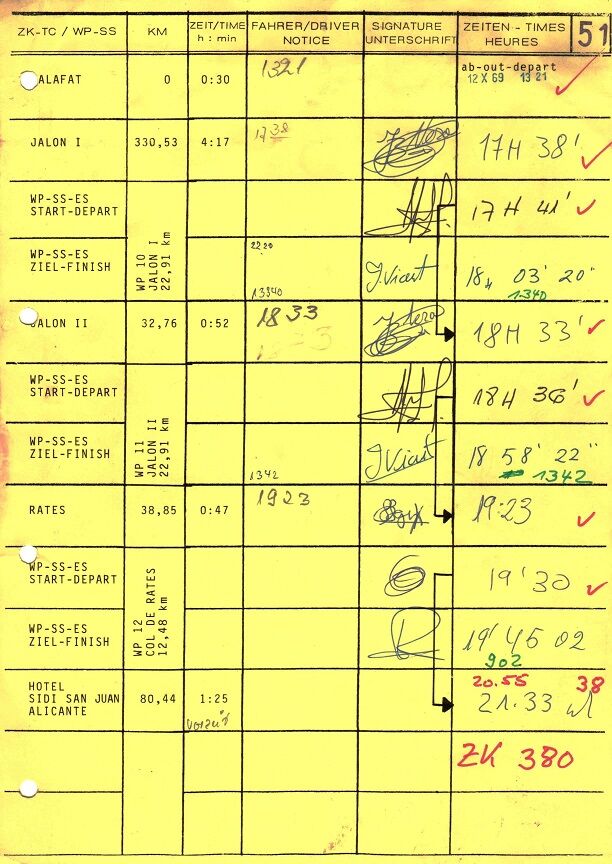 ZK-TC / WP-SS KM ZEIT/TIME FAHRER/DRIVER SIGNATURE ZEITEN - TIMES 51
h : min NOTICE UNTERSCHRIFT HEURES
ALAFAT 0 0:30 1321 ab-out-depart
12 X 69 13 21
JALON I 330,53 4:17 1738 17H 38'
WP-SS-ES
START-DEPART 17 H 41'
WP 10
JALON I
22,91 km
WP-SS-ES 2220
ZIEL-FINISH J.Viart 18H 03' 20"
13340 1340
JALON II 32,76 0:52 1833 18H 33'
WP-SS-ES
START-DEPART 18H 36'
WP 11
JALON II
22,91 km
WP-SS-ES
ZIEL-FINISH J.Viart 18 58' 22"
1342 1342
RATES 38,85 0:47 1923 19:23
WP-SS-ES
START-DEPART 19'30
WP 12
COL DE RATES
12,48 km
WP-SS-ES
ZIEL-FINISH 19' 45 02
902
HOTEL 20.55 38
SIDI SAN JUAN 80,44 1:25 21.33
ALICANTE
Vorzeit
ZK 380